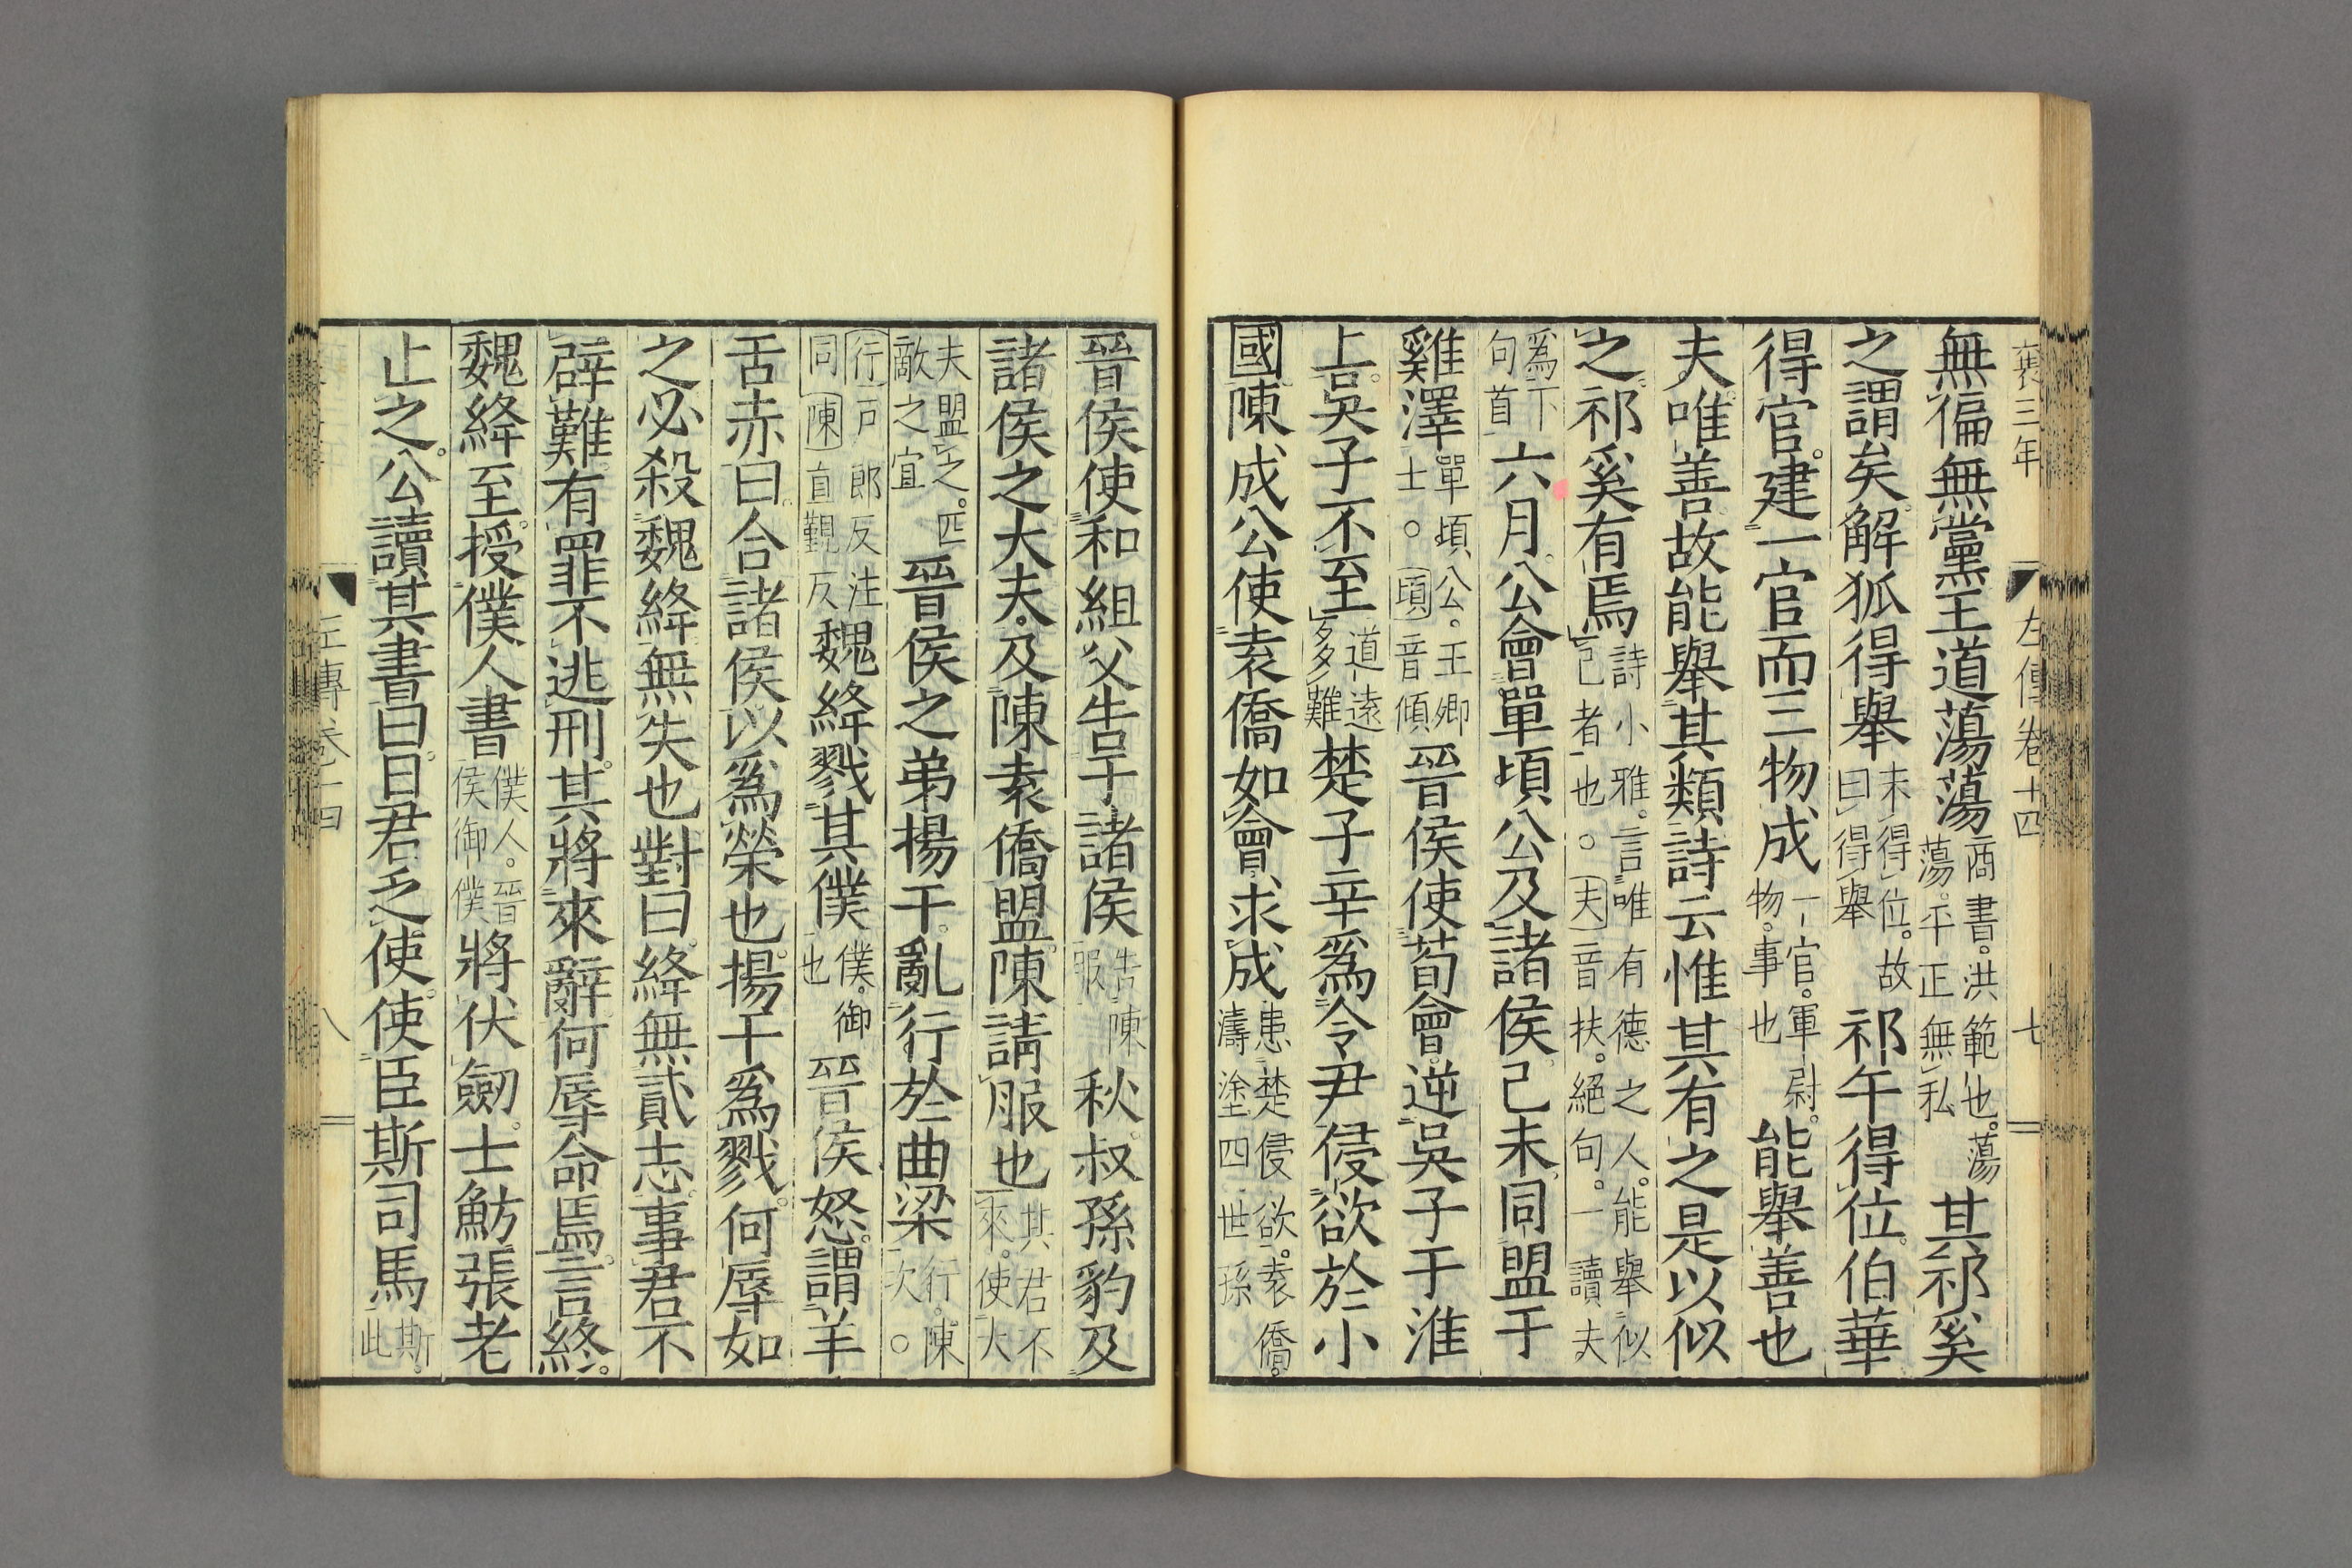 襄三年 左傳卷十四 七
無偏無黨王道蕩蕩商書洪範也蕩蕩平正無私其祁奚
之謂矣解狐得舉未得位故曰得舉祁午得位伯華
得官建一官而三物成一官軍尉物事也能舉善也
夫唯善故能舉其類詩云惟其有之是以似
之祁奚有焉詩小雅言唯有德之人能舉似己者也。夫音扶絕句一讀夫
爲下句首六月公會單頃公及諸侯己未同盟于
雞澤單頃公王卿士。頃音傾晉侯使荀會逆吳子于淮
上吳子不至道遠多難楚子辛爲令尹侵欲於小
國陳成公使袁僑如會求成患楚侵欲袁僑濤塗四世孫
晉侯使和組父告于諸侯告陳服秋叔孫豹及
諸侯之大夫及陳袁僑盟陳請服也其君不來使大
夫盟之匹敵之宜晉侯之弟揚干亂行於曲梁行陳次。
行戶郎反注同陳直覲反魏絳戮其僕僕御也晉侯怒謂羊
舌赤曰合諸侯以爲榮也揚干爲戮何辱如
之必殺魏絳無失也對曰絳無貳志事君不
辟難有罪不逃刑其將來辭何辱命焉言終
魏絳至授僕人書僕人晉侯御僕將伏劒士魴張老
止之公讀其書曰日君乏使使臣斯司馬斯此
左傳卷十四 八